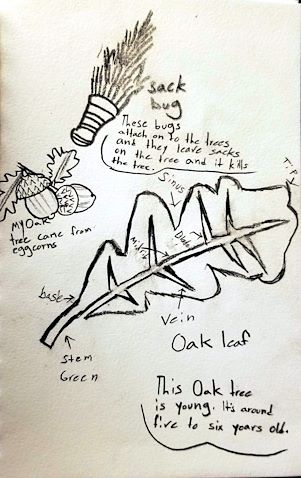 sack
bug
These bugs
attach on to the trees
and they leave sacks
on the tree and it kills
the tree.
Tip
Sinus
My Oak
tree came from
eggcorns
Midrib
base
Vein
Oak leaf
Stem
Green
This Oak tree
is young. It's around
five to six years old.